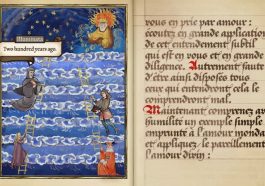 Illuminata
Two hundred years ago.
vous en prie par amour :
écoutez en grande application
de cet entendement subtil
qui est en vous et en grande
diligence. Autrement faute
d'être ainsi disposés tous
ceux qui entendront cela le
comprendront mal.
Maintenant comprenez avec
humilité un exemple simple
emprunté à l'amour mondain
et appliquez-le pareillement
l'amour divin :